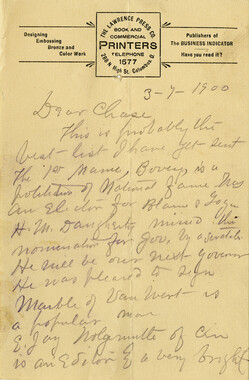 Designing
Embossing
Bronze and
Color Work
THE LAWRENCE PRESS CO.
BOOK AND
COMMERCIAL
PRINTERS
TELEPHONE
1577
268 N. High St. Columbus, O.
Publishers of
The BUSINESS INDICATOR
Have you read it?
3-7-1900
Dear Chase,
This is probably the
best list I have yet sent
The 1st Name, Bovey, is a
politician of National fame. Was
an Elector for Blaine & Logan
H. M. Daugherty missed the
nomination for Gov. by a scratch
He will be our next Governor
He was pleased to sign
Marble of Van Wert is
a popular man
E. Jay Wolgamutte of Cin
is an Editor of a very bright